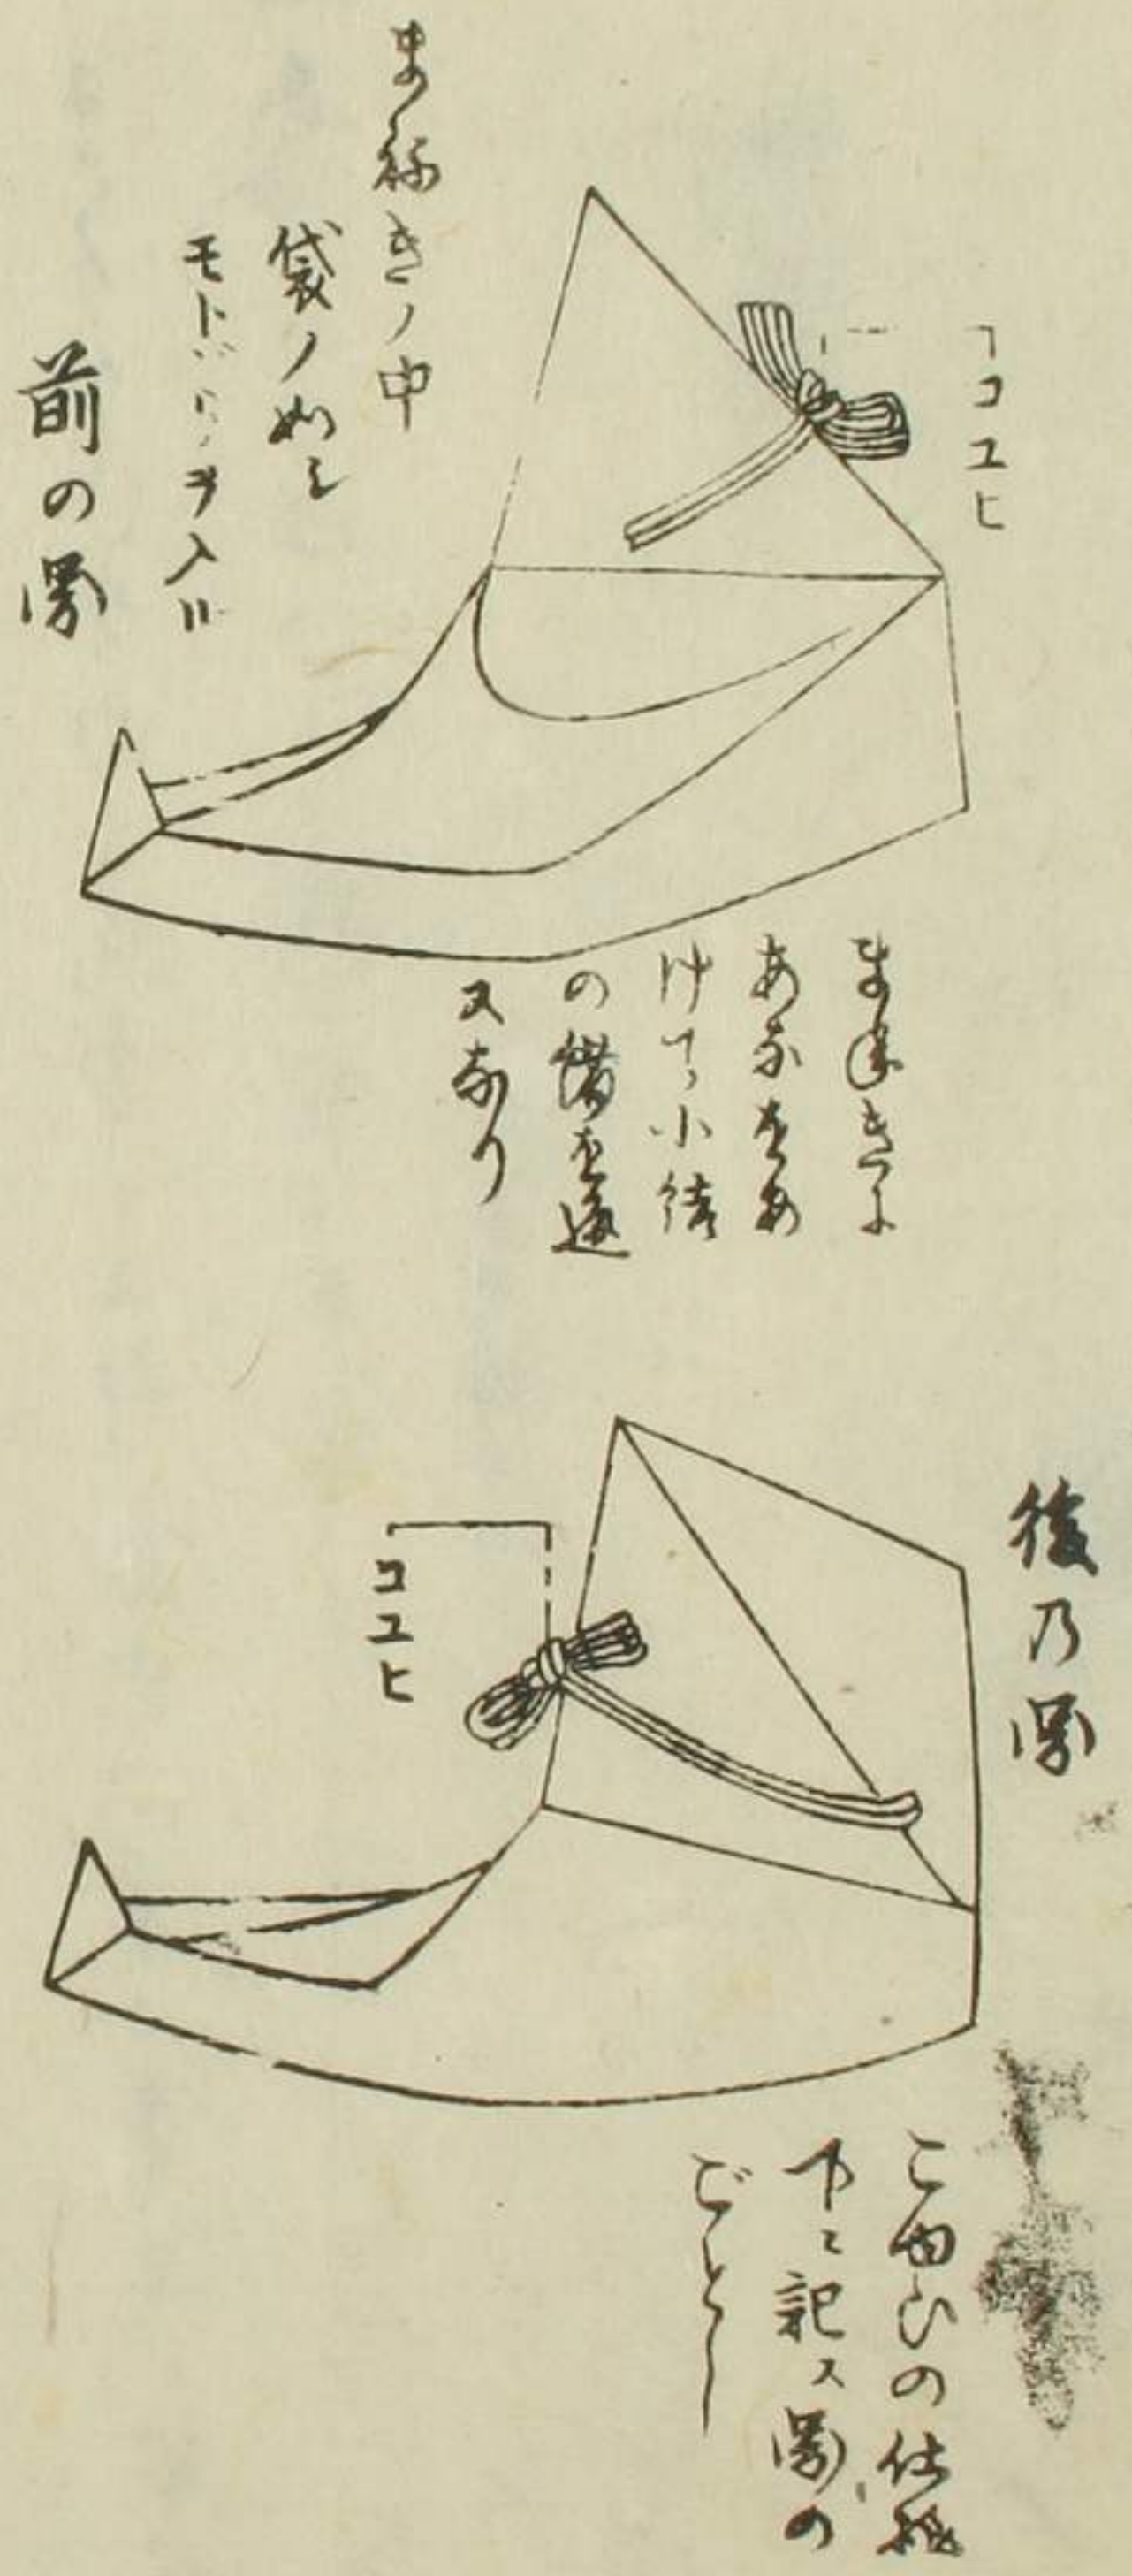 コユヒ
まねきノ中
袋ノ如シ
モトヾリヲ入ル
前の圖
まねきに
あなをあ
けて小結
の緒を通
スなり
後乃圖
コユヒ
こゆひの仕様
下ニ記ス圖の
ごとし